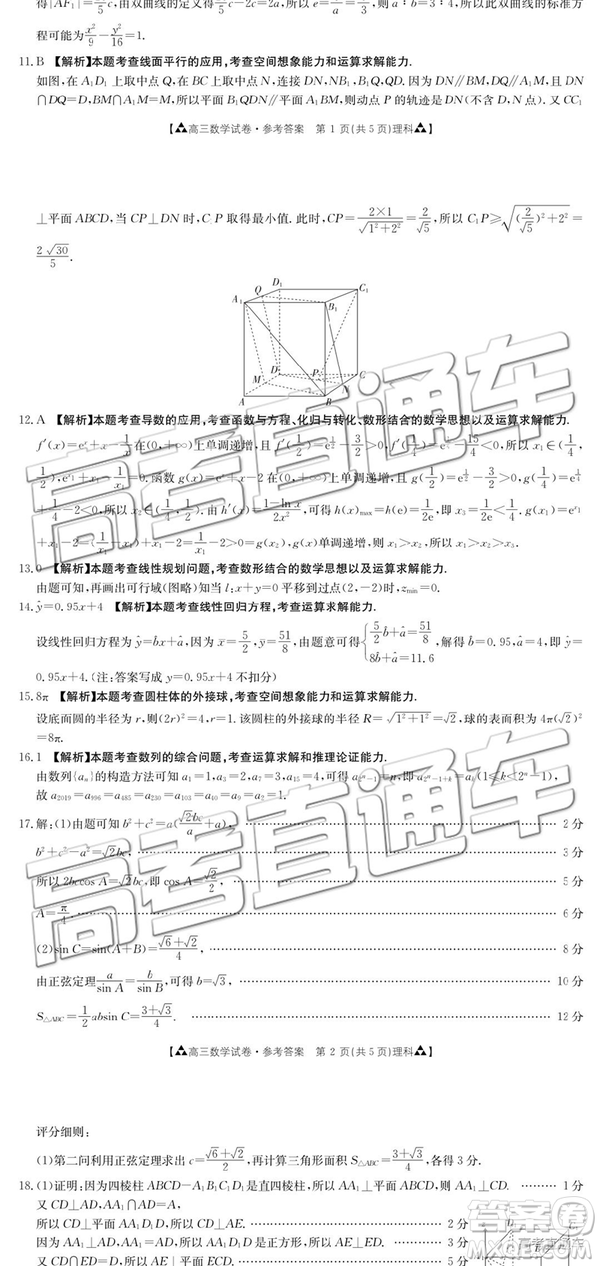 得|AF₁|=—/5 c,由双曲线的定义得—/5 c-2c=2a,所以e=—/a=—/3,则a∶b=3∶4,所以此双曲线的标准方
程可能为x²/9-y²/16=1.
11.B 【解析】本题考查线面平行的应用,考查空间想象能力和运算求解能力.
如图,在A₁D₁上取中点Q,在BC上取中点N,连接DN,NB₁,B₁Q,QD.因为DN∥BM,DQ∥A₁M且DN
∩DQ=D,BM∩A₁M=M,所以平面B₁QDN∥平面A₁BM,则动点P的轨迹是DN(不含D,N点).又CC₁
【高三数学试卷·参考答案 第1页(共5页)理科】
⊥平面ABCD,当CP⊥DN时,C₁P取得最小值.此时,CP=2×1/√(1²+2²)=2/√5,所以C₁P≥√((2/√5)²+2²)=
2√30/5.
D₁ C₁
Q
A₁ B₁
D C
M P N
A B
12.A 【解析】本题考查导数的应用,考查函数与方程、化归与转化、数形结合的数学思想以及运算求解能力.
f′(x)=eˣ+x-1/x在(0,+∞)上单调递增,且f′(1/2)=e^(1/2)-3/2>0,f′(1/4)=e^(1/4)-15/4<0,所以x₁∈(1/4,
1/2),e^(x₁)+x₁-1/x₁=0.函数g(x)=eˣ+x-2在(0,+∞)上单调递增,且g(1/2)=e^(1/2)-3/2>0,g(1/4)=e^(1/4)
+1/4-2<0,所以x₂∈(1/4,1/2).由h′(x)=(1-ln x)/2x²,可得h(x)max=h(e)=1/2e,即x₃=1/2e<1/4.g(x₁)=e^(x₁)
+x₁-2=(1/x₁-x₁)+x₁-2=1/x₁-2>0=g(x₂),g(x)单调递增,所以x₁>x₂,所以x₁>x₂>x₃.
13.0 【解析】本题考查线性规划问题,考查数形结合的数学思想以及运算求解能力.
由题可知,再画出可行域(图略)知当l:x+y=0平移到过点(2,-2)时,zmin=0.
14.ŷ=0.95x+4 【解析】本题考查线性回归方程,考查运算求解能力.
设线性回归方程为ŷ=b̂x+â,因为x̄=5/2,ȳ=51/8,由题意可得{5/2 b̂+â=51/8, 8b̂+â=11.6,解得b̂=0.95,â=4,即ŷ=
0.95x+4.(注:答案写成y=0.95x+4不扣分)
15.8π 【解析】本题考查圆柱体的外接球,考查空间想象能力和运算求解能力.
设底面圆的半径为r,则(2r)²=4,r=1.该圆柱的外接球的半径R=√(1²+1²)=√2,球的表面积为4π(√2)²
=8π.
16.1 【解析】本题考查数列的综合问题,考查运算求解和推理论证能力.
由数列{aₙ}的构造方法可知a₁=1,a₃=2,a₇=3,a₁₅=4,可得a_(2ⁿ-1)=n,a_(2ⁿ-1+k)=a_k(1≤k<2ⁿ-1),
故a₂₀₁₉=a₉₉₆=a₄₈₅=a₂₃₀=a₁₀₃=a₄₀=a₉=a₂=1.
17.解:(1)由题可知b²+c²=a(√2bc/a+a), 2分
b²+c²-a²=√2bc, 3分
所以2bccos A=√2bc,即cos A=√2/2, 5分
A=π/4. 6分
(2)sin C=sin(A+B)=(√6+√2)/4, 8分
由正弦定理a/sin A=b/sin B,可得b=√3, 10分
S△ABC=1/2 absin C=(3+√3)/4. 12分
【高三数学试卷·参考答案 第2页(共5页)理科】
评分细则:
(1)第二问利用正弦定理求出c=(√6+√2)/2,再计算三角形面积S△ABC=(3+√3)/4,各得3分.
18.(1)证明:因为四棱柱ABCD-A₁B₁C₁D₁是直四棱柱,所以AA₁⊥平面ABCD,则AA₁⊥CD. 1分
又CD⊥AD,AA₁∩AD=A,
所以CD⊥平面AA₁D₁D,所以CD⊥AE. 2分
因为AA₁⊥AD,AA₁=AD,所以AA₁D₁D是正方形,所以AE⊥ED. 3分
又CD∩ED=D,所以AE⊥平面ECD. 5分
高考直通车
高考直通车
高考直通车
答案圈